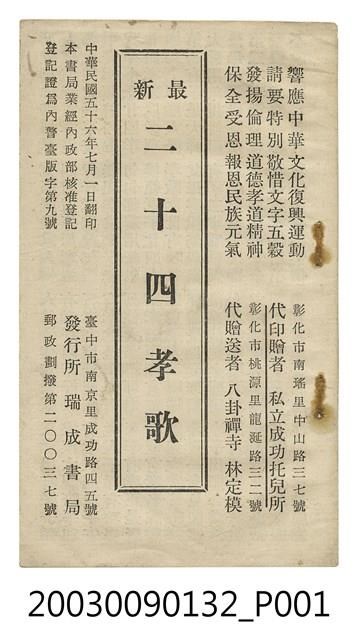 響應中華文化復興運動
請要特別敬惜文字五穀
發揚倫理道德孝道精神
保全受恩報恩民族元氣
彰化市南瑤里中山路三七號
代印贈者 私立成功托兒所
彰化市桃源里龍涎路三二號
代贈送者 八卦禪寺 林定模
最新
二十四孝歌
中華民國五十六年七月一日翻印
本書局業經內政部核准登記
登記證為內警臺版字第九號
臺中市南京里成功路四五號
發行所瑞成書局
郵政劃撥第二〇〇三七號
20030090132_P001